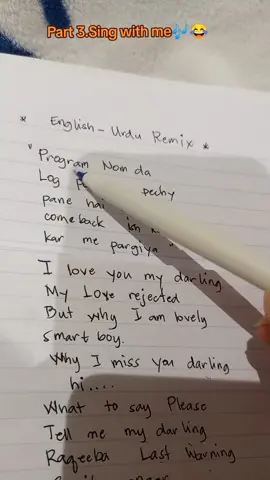 Part 3.Sing with me🎶😂
* English - Urdu Remix *
"Program Nom da
Log pechy
pane hai
comeback
kar me pargiya "
I love you my darling
My Love rejected
But why I am lovely
smart boy.
Why I miss you darling
hi....
What to say Please
Tell me my darling
Raqeeba Last Warning